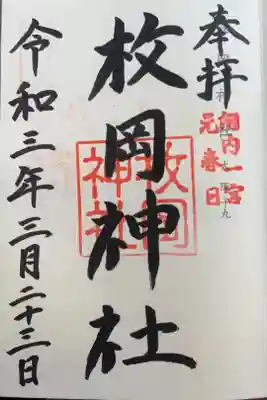 奉拝
河内一宮
元春日
枚岡神社
枚岡
神社
令和三年三月二十三日